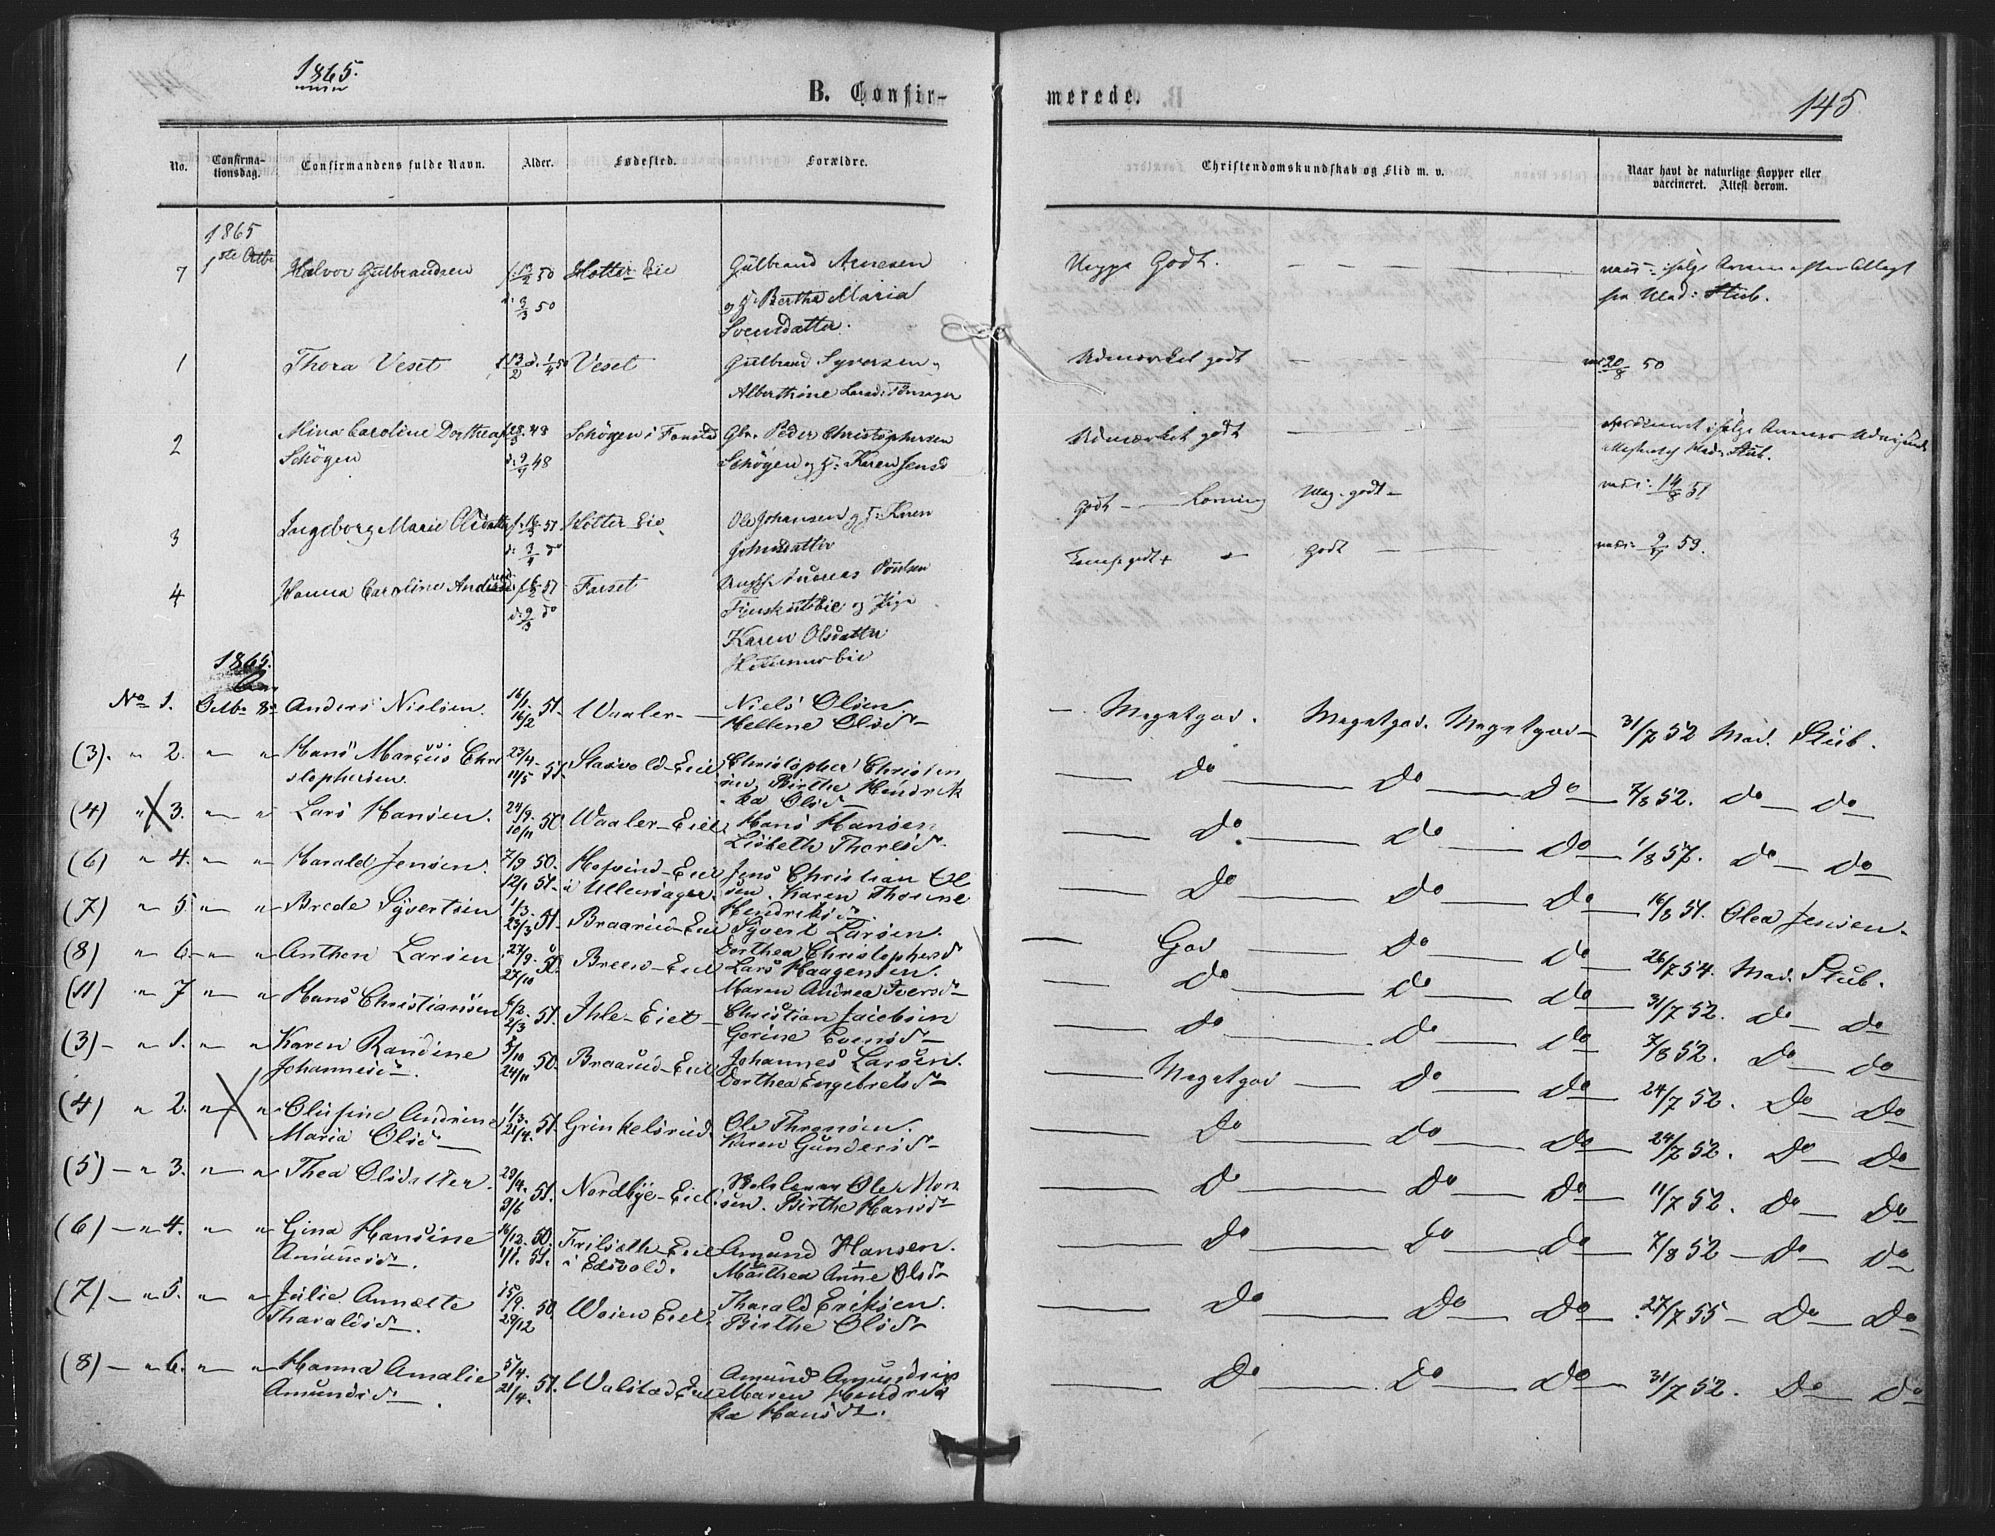 1865.
B. Confir-
merede.
145
No.
Confirma-
tionsdag.
Confirmandens fulde Navn.
Alder.
Fødested.
Forældre.
Christendomskundskab og Flid m. v.
Naar havt de naturlige Kopper eller
vaccineret. Attest derom.
1865
1ste Octbr
7 Halvor Gulbrandsen 50 Holter Eie Gulbrand Arnesen
og H: Bertha Maria
Svendsdatter.
Godt.
fra Mad: Stub.
1 Thora Veset Veset Gulbrand Syversen
Alberthine
Udmærket godt 20/8 50
2 Mina Caroline Dorthea
Schøyen
48 Schøyen i Peder Christophersen
Schøyen og H: Karen Jensd
Udmærket godt
Mad: Stub.
3 Ingeborg Marie Olsdatter 51 Holter Eie Ole Johansen og H: Karen
Johnsdatter
Godt godt 14/8 51
4 Hanna Caroline 51 Faiset
Karen Olsdatter
godt 59.
1865.
No 1. Octbr 8de Anders Nielsen. 16/1 16/2 51 Waaler Niels Olsen.
Hellene Olsd
Megetgod. Megetgod. Megetgod 31/7 52 Mad. Stub.
(3). " 2. Hans Marcus Chri
stophersen 23/4 11/5 51. Eiet Christopher Christen
sen, Birthe Hendrik
ka Olsd
do Do Do 7/8 52. Do Do
(4) " 3. Lars Hansen. 24/9 10/11 50 Waaler-Eiet Hans Hansen
Lisbeth Thorlsd
Do. Do Do 1/8 57. Do Do
(6) " 4. Harald Jensen. 7/9 50. 12/1 51 Hofvind-Eiet
i Ullensager. Jens Christian Ol
sen. Karen Thorine
Hendriksd
Do Do Do 16/8 51. Olea Jensen.
(7) " 5 Brede Syvertsen 1/3 23/3 51 Braarud-Eiet Syvert Larsen.
Dorthea Christophersd
God Do Do 26/7 54. Mad. Stub.
(8) " 6. Anthon Larsen 27/9 27/10 50. Eiet Lars Haagensen.
Maren Andrea Iversd
Do Do Do 31/7 52. Do Do
(11) " 7 Hans Christiansen 6/2 2/3 51. Ihle-Eiet Christian Jacobsen
Gorine Evensd
Do Do Do 7/8 52. Do Do
(3) " 1. Karen Randine
Johannesd. 5/10 24/11 50. Braarud-Eiet Johannes Larsen.
Dorthea Engebretsd
Megetgod Do Do 24/7 52. Do Do
(4) " 2. Olufine Andrine
Maria Olsd 1/3 21/4 51 Grinkelsrud. Ole Thronsen.
Karen Gundersd
Do Do Do 24/7 52. Do Do
(5) " 3. Thea Olsdatter. 29/4 3/6 51. Nordbye-Eiet Ole Mor
sen. Birthe Hansd
Do Do Do 11/7 52. Do Do
(6) " 4. Gina Hansine
Amundsd 16/12 50. 1/1 51. Frilseth-Eiet
i Edsvold. Amund Hansen.
Marthea Anne Olsd
Do Do Do 7/8 52 Do Do
(7) " 5. Julie Annette
Tharaldsd. 15/9 29/12 50. Woien Eiet. Tharald Eriksen.
Birthe Olsd
Do Do Do 27/7 55 Do Do
(8) " 6. Hanna Amalie
Amundsd. 5/4 21/4 51. Walstad Eiet Amund Amundsen
Maren Hendrik
ka Hansd.
Do Do Do 31/7 52. Do Do